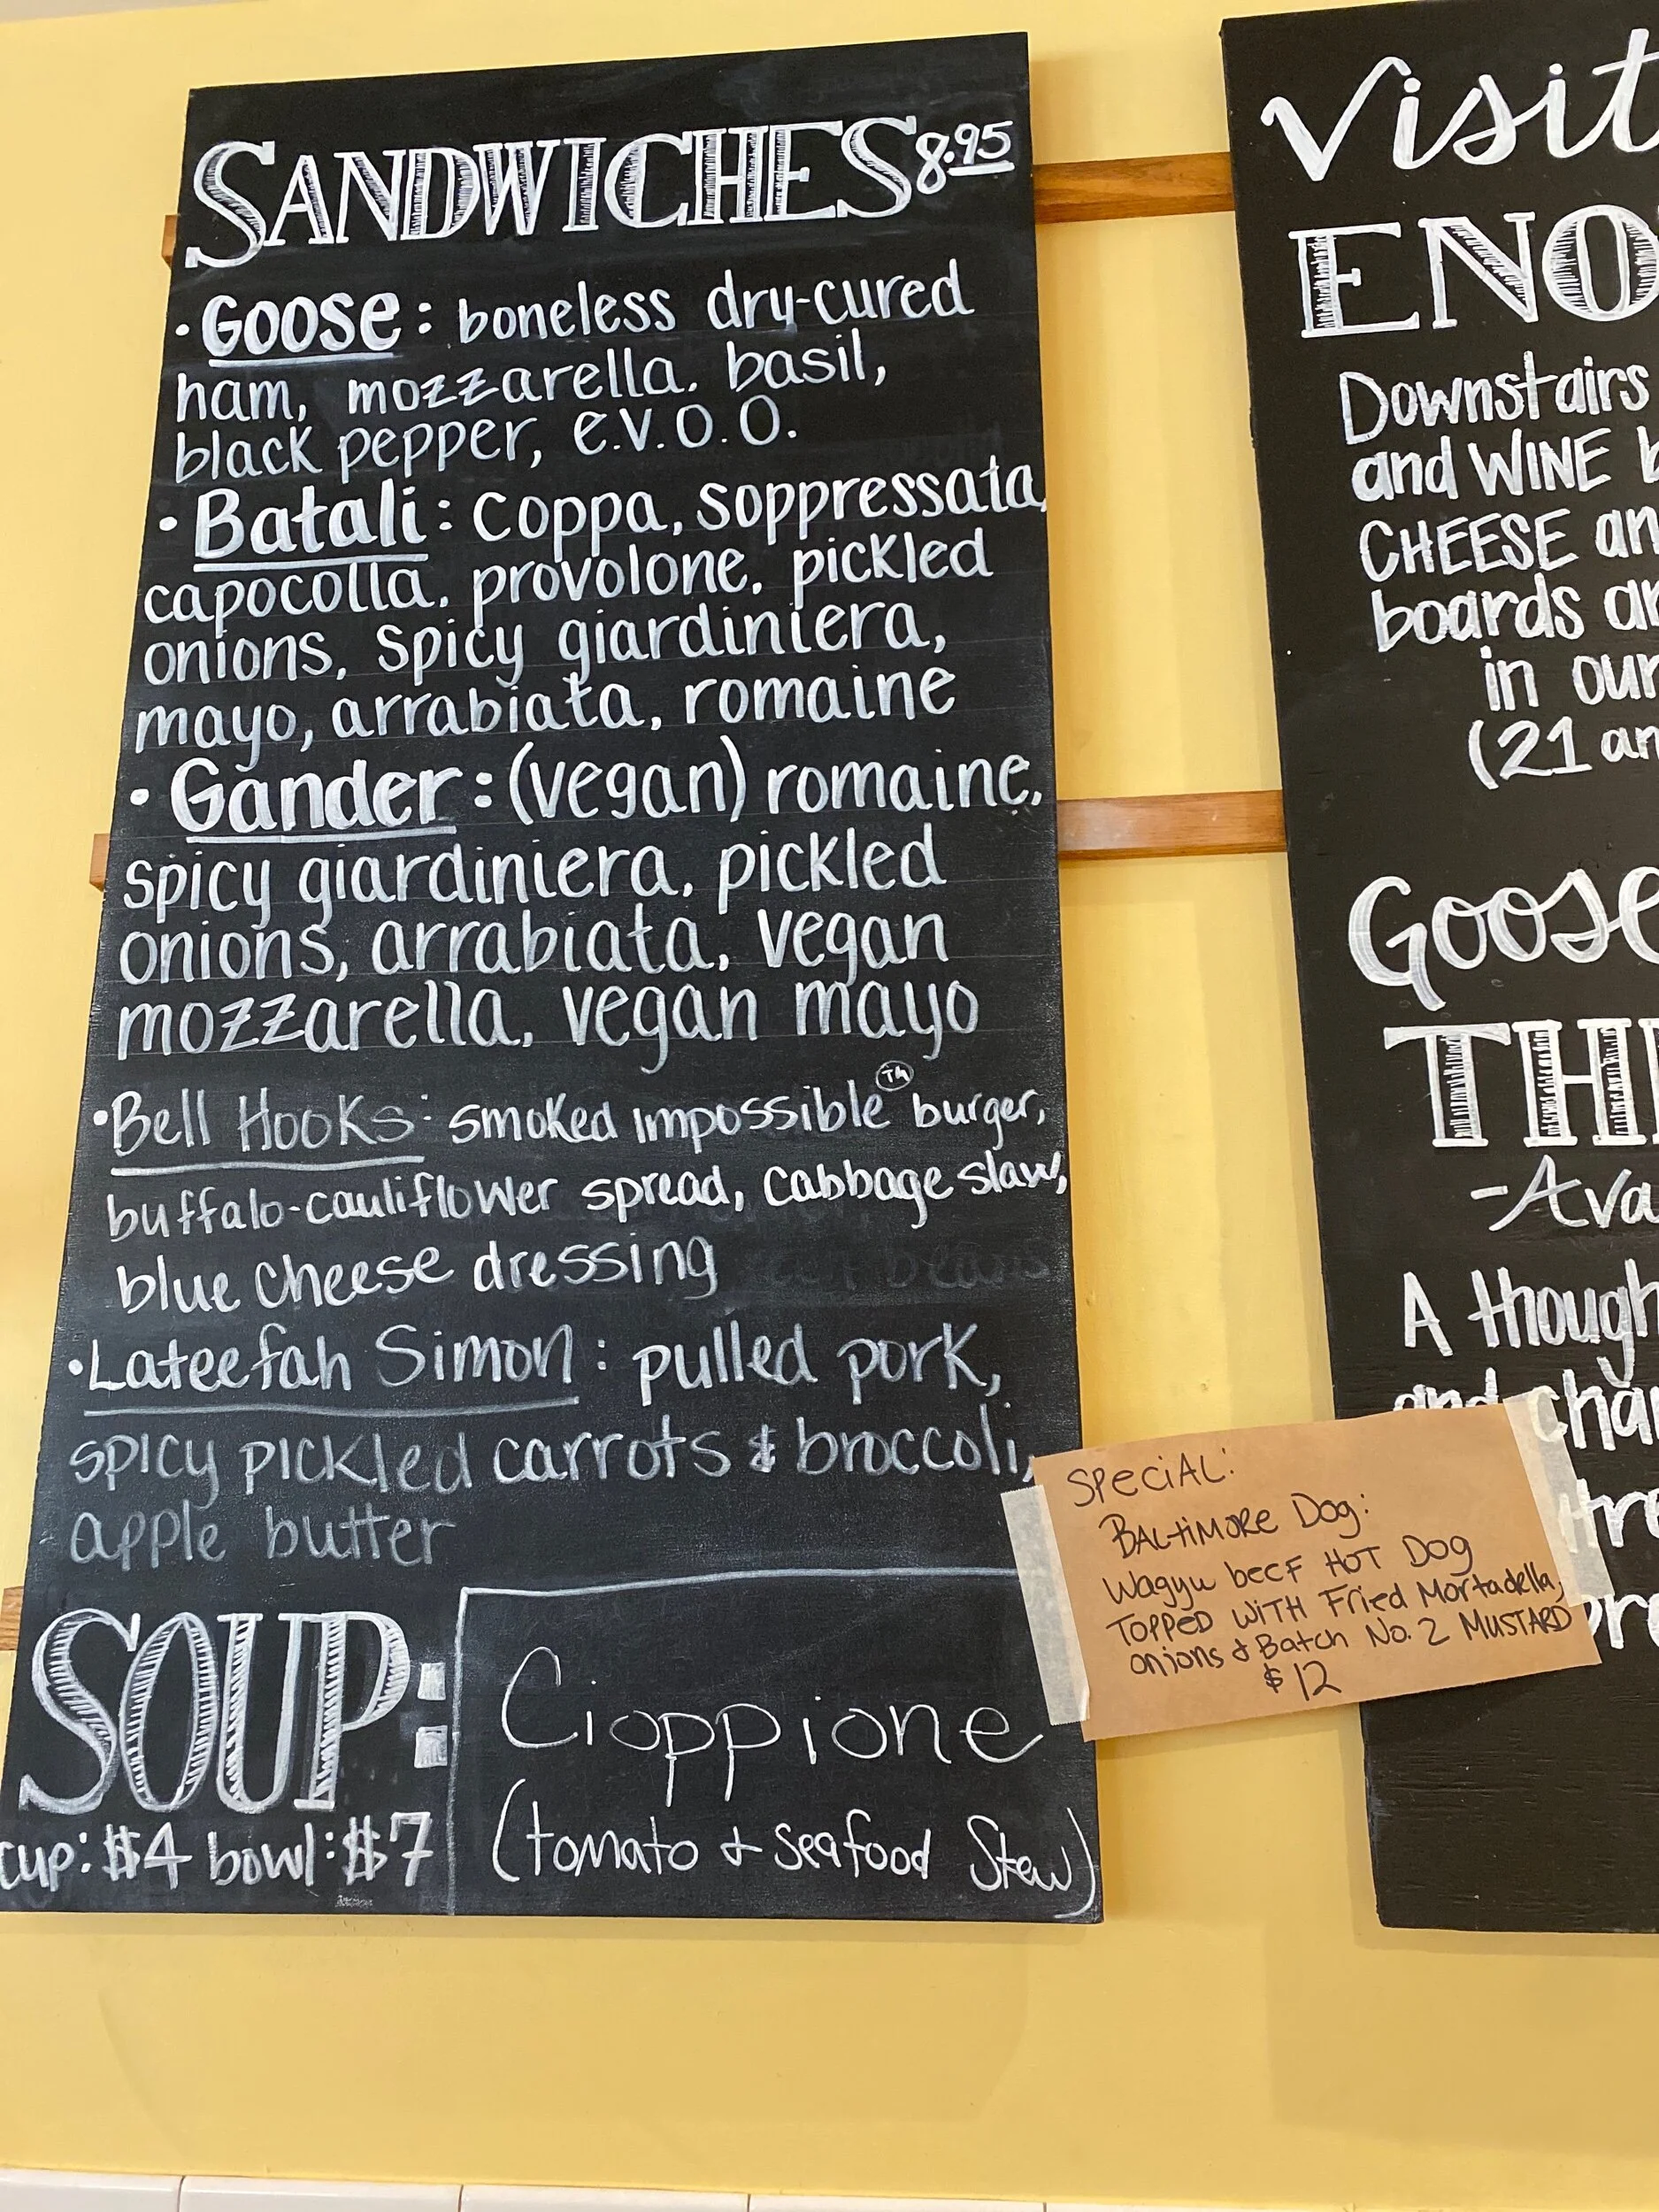 SANDWICHES 8.95
• Goose: boneless dry-cured
ham, mozzarella, basil,
black pepper, e.v.o.o.
• Batali: coppa, soppressata,
capocolla, provolone, pickled
onions, spicy giardiniera,
mayo, arrabiata, romaine
• Gander: (vegan) romaine,
spicy giardiniera, pickled
onions, arrabiata, vegan
mozzarella, vegan mayo
• Bell Hooks: smoked Impossible TM burger,
buffalo-cauliflower spread, cabbage slaw,
blue cheese dressing
• Lateefah Simon: pulled pork,
spicy pickled carrots & broccoli,
apple butter
SOUP:
cup: $4 bowl: $7
Cioppione
(tomato & seafood Stew)
Visit
ENO
Downstairs
and WINE b
CHEESE an
boards ar
in our
(21 an
Goose
THE
-Ava
A though
and char
tre
pre
SPECiAL:
BALtiMORE Dog:
Wagyu beeF HOT Dog
TOPPED WiTH Fried Mortadella,
onions & Batch No. 2 MUSTARD
$12